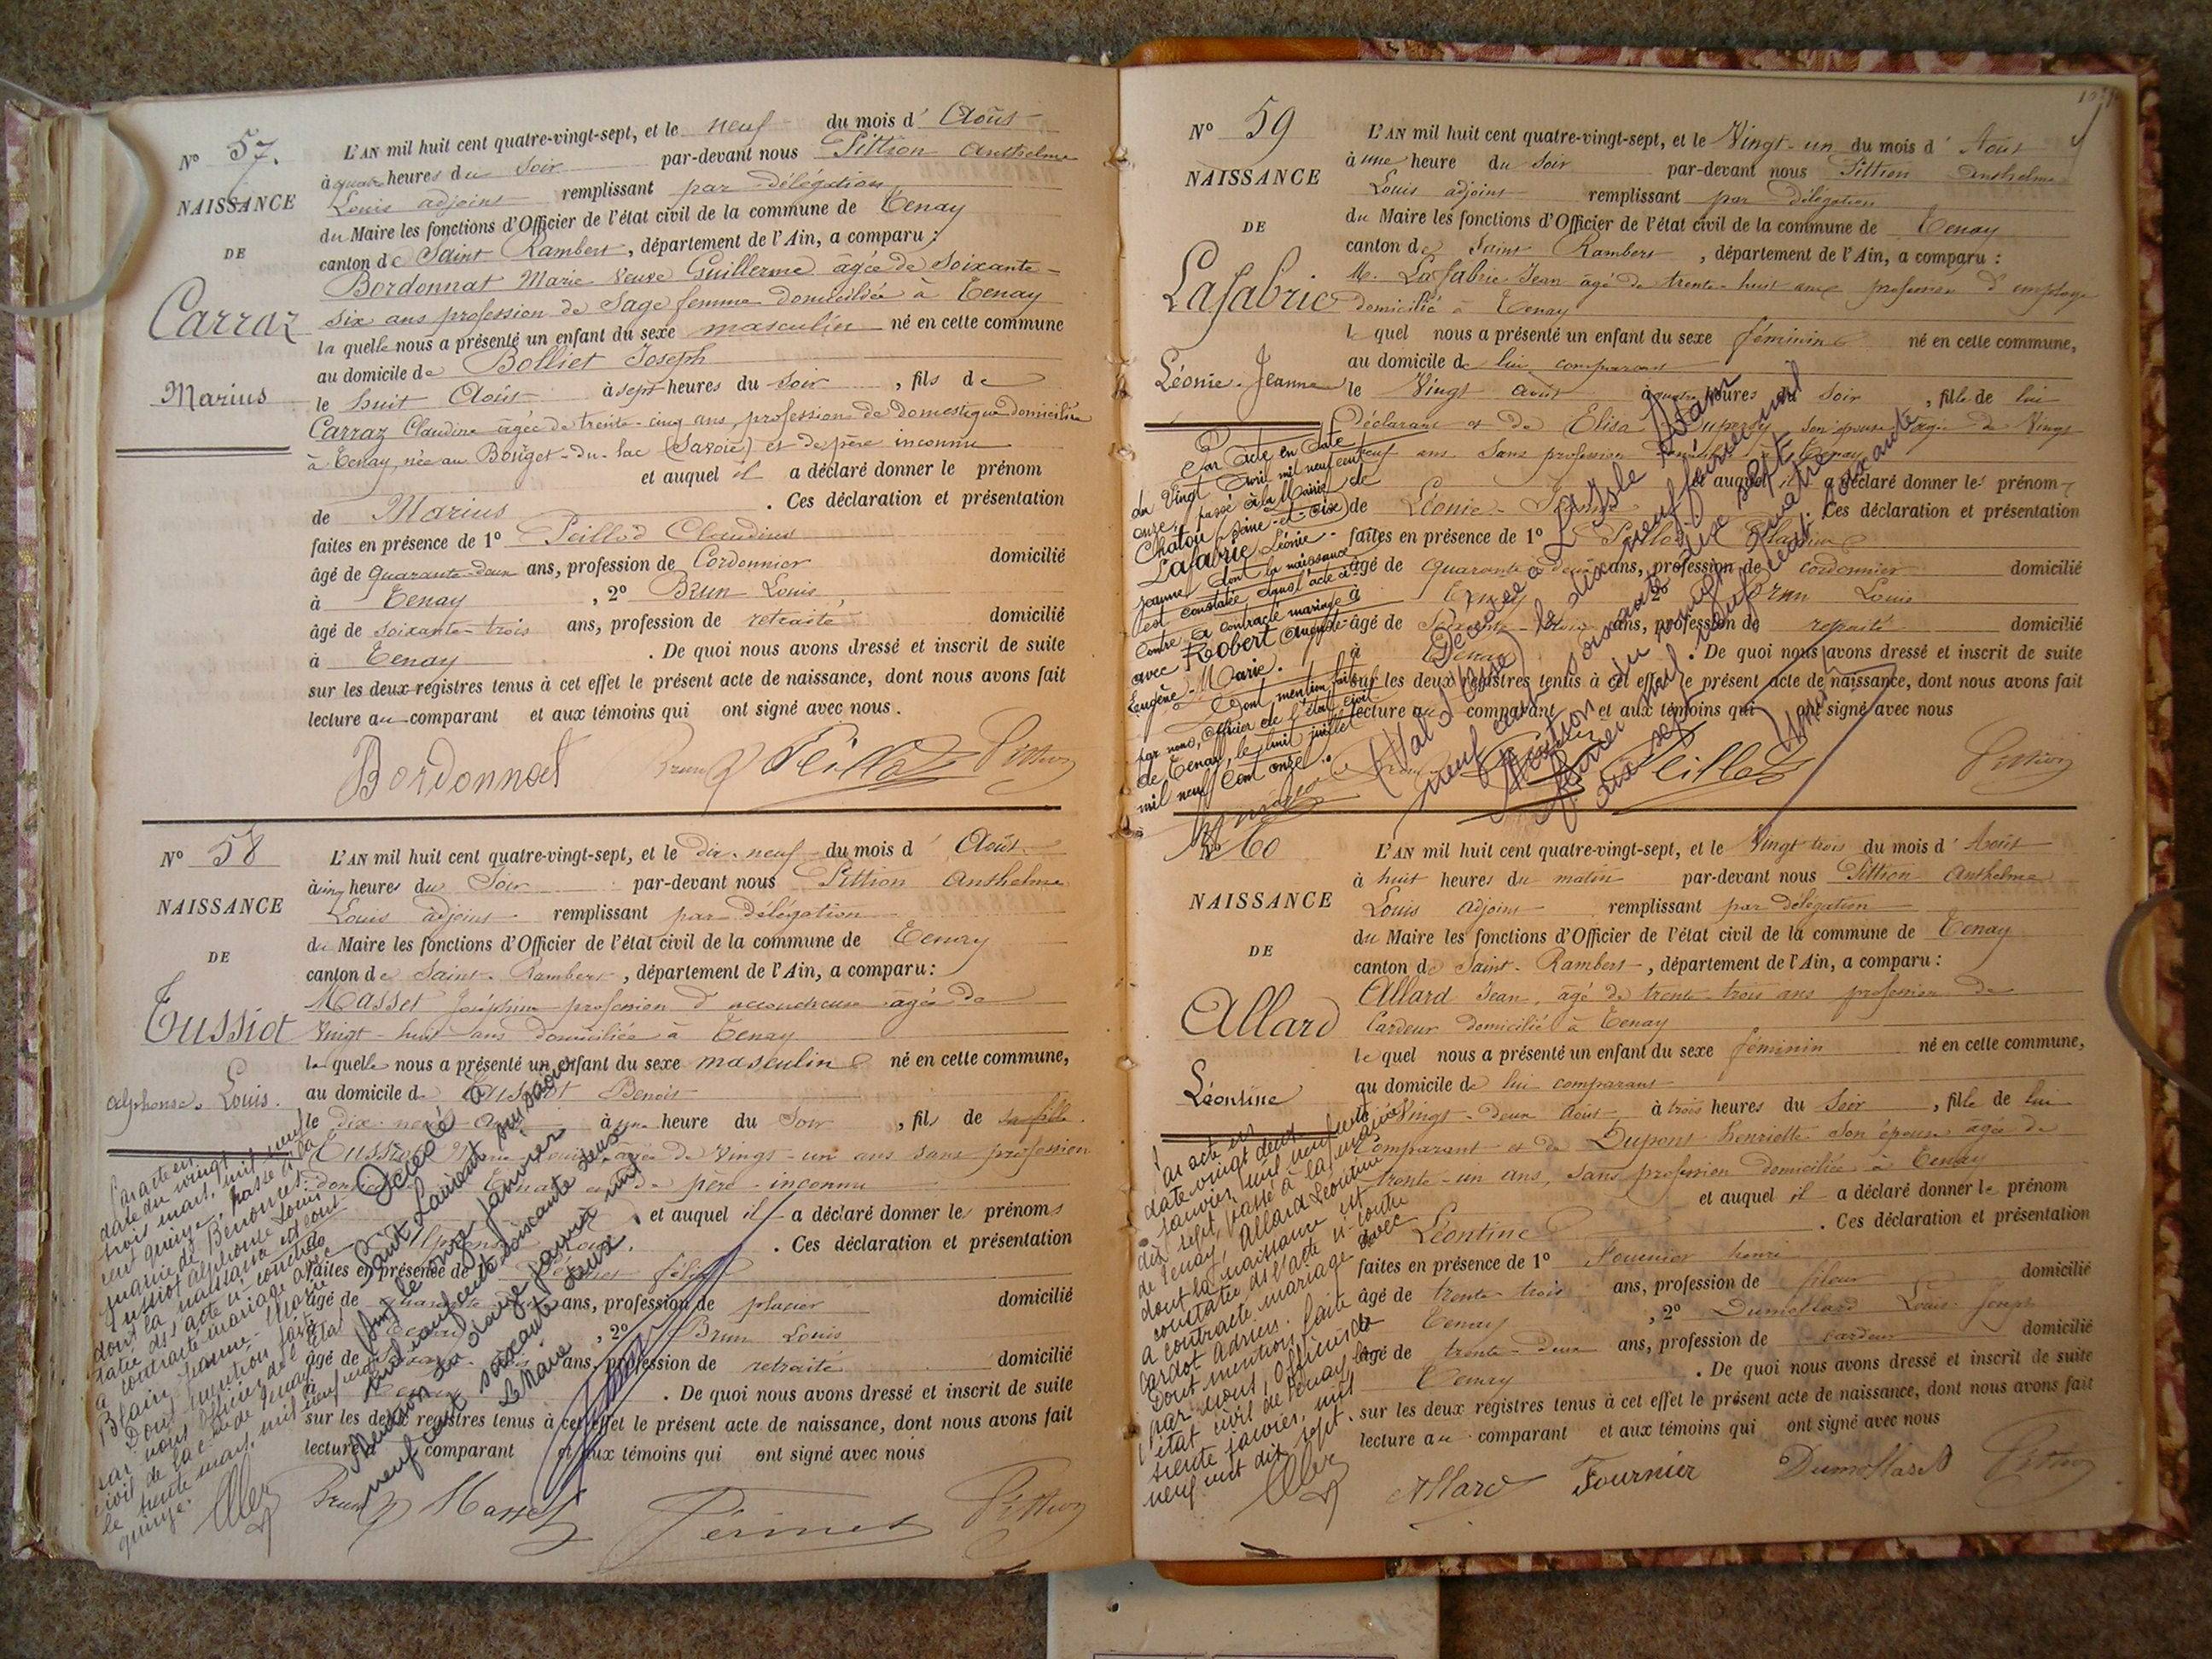 N° 57.
NAISSANCE
DE
Carraz
Marius
L'AN mil huit cent quatre-vingt-sept, et le neuf du mois d' Août
à quatre heures du Soir par-devant nous Pittion Anthelme
Louis adjoint remplissant par délégation
du Maire les fonctions d'Officier de l'état civil de la commune de Tenay
canton de Saint Rambert, département de l'Ain, a comparu :
Bordonnat Marie Veuve Guillerme âgée de Soixante-
six ans profession de Sage femme domiciliée à Tenay
la quelle nous a présenté un enfant du sexe masculin né en cette commune
au domicile de Bolliet Joseph
le huit Août à sept heures du soir, fils de
Carraz Claudine âgée de trente-cinq ans, profession de domestique domiciliée
à Tenay, née au Bourget-du-lac (Savoie) et de père inconnu
et auquel il a déclaré donner le prénom
de Marius. Ces déclaration et présentation
faites en présence de 1° Peillod Claudius
âgé de quarante-deux ans, profession de Cordonnier domicilié
à Tenay, 2° Brun Louis,
âgé de soixante-trois ans, profession de retraité domicilié
à Tenay. De quoi nous avons dressé et inscrit de suite
sur les deux registres tenus à cet effet le présent acte de naissance, dont nous avons fait
lecture au comparant et aux témoins qui ont signé avec nous.
Bordonnat Brun Peillod Pittion
N° 58
NAISSANCE
DE
Tussiot
Alphonse. Louis.
L'AN mil huit cent quatre-vingt-sept, et le dix-neuf du mois d' Août
à cinq heures du Soir par-devant nous Pittion Anthelme
Louis adjoint remplissant par délégation
du Maire les fonctions d'Officier de l'état civil de la commune de Tenay
canton de Saint-Rambert, département de l'Ain, a comparu :
Masset Joséphine profession d'accoucheuse âgée de
Vingt-huit ans domiciliée à Tenay
la quelle nous a présenté un enfant du sexe masculin né en cette commune,
au domicile de Tussiot Benoit
le dix-neuf Août à une heure du Soir, fils de sa fille
Tussiot Marie Louise, âgée de Vingt-un ans sans profession
domiciliée à Tenay et de père inconnu
et auquel il a déclaré donner les prénoms
de Alphonse Louis. Ces déclaration et présentation
faites en présence de 1° Périnet félix
âgé de quarante ans, profession de platier domicilié
à Tenay, 2° Brun Louis
âgé de Soixante-trois ans, profession de retraité domicilié
à Tenay. De quoi nous avons dressé et inscrit de suite
sur les deux registres tenus à cet effet le présent acte de naissance, dont nous avons fait
lecture au comparant et aux témoins qui ont signé avec nous
Brun Masset Périnet Pittion
Par acte en
date du vingt
trois mars, mil neuf
cent quinze, passé à la
mairie de Bénonces,
Tussiot Alphonse Louis
dont la naissance est cons-
tatée ds l'acte ci-contre
a contracté mariage avec
Blain Jeanne-Marie
Dont mention faite
par nous, officier de l'état
civil de la cne de Tenay
le trente mars, mil neuf cent
quinze.
Décédé à
Saint Laurent sur Saône
(Ain) le onze janvier
mil neuf cent soixante deux
Mention du douze janvier mil
neuf cent soixante deux
Le Maire
N° 59
NAISSANCE
DE
Lafabrie
Léonie-Jeanne
L'AN mil huit cent quatre-vingt-sept, et le Vingt-un du mois d' Août
à une heure du Soir par-devant nous Pittion Anthelme
Louis adjoint remplissant par délégation
du Maire les fonctions d'Officier de l'état civil de la commune de Tenay
canton de Saint Rambert, département de l'Ain, a comparu :
M. Lafabrie Jean âgé de trente-huit ans profession d'employé
domicilié à Tenay
le quel nous a présenté un enfant du sexe féminin né en cette commune,
au domicile de lui comparant
le Vingt août à quatre heures du Soir, fille de lui
Déclarant et de Elisa Duperoy son épouse âgée de Vingt
neuf ans Sans profession domiciliée à Tenay
et auquel il a déclaré donner les prénoms
de Léonie-Jeanne. Ces déclaration et présentation
faites en présence de 1° Peillod Claudius
âgé de quarante deux ans, profession de cordonnier domicilié
à Tenay, 2° Brun Louis
âgé de Soixante-trois ans, profession de retraité domicilié
à Tenay. De quoi nous avons dressé et inscrit de suite
sur les deux registres tenus à cet effet le présent acte de naissance, dont nous avons fait
lecture au comparant et aux témoins qui ont signé avec nous
Brun Peillod Pittion
Par acte en date
du vingt Avril mil neuf cent
onze, passé à la Mairie de
Chatou (Seine-et-Oise)
Lafabrie Léonie-
Jeanne dont la naissance
est constatée dans l'acte ci-
contre a contracté mariage à
avec Robert Auguste
Eugène-Marie.
Dont mention faite
par nous, Officier de l'état civil
de Tenay, le huit juillet
mil neuf cent onze.
Décédée à L'Isle Adam
(Val d'Oise) le dix neuf février mil
neuf cent soixante dix sept
Mention du vingt quatre
février mil neuf cent soixante
dix sept
N° 60
NAISSANCE
DE
Allard
Léontine
L'AN mil huit cent quatre-vingt-sept, et le Vingt trois du mois d' Août
à huit heures du matin par-devant nous Pittion Anthelme
Louis adjoint remplissant par délégation
du Maire les fonctions d'Officier de l'état civil de la commune de Tenay
canton de Saint-Rambert, département de l'Ain, a comparu :
Allard Jean, âgé de trente-trois ans profession de
Cardeur domicilié à Tenay
le quel nous a présenté un enfant du sexe féminin né en cette commune,
au domicile de lui comparant
le Vingt-deux Août à trois heures du Soir, fille de lui
Comparant et de Dupont Henriette son épouse âgée de
trente-un ans, Sans profession domiciliée à Tenay
et auquel il a déclaré donner le prénom
Léontine. Ces déclaration et présentation
faites en présence de 1° Fournier henri
âgé de trente-trois ans, profession de fileur domicilié
Tenay, 2° Dumollard Louis-Joseph
âgé de trente-deux ans, profession de cardeur domicilié
Tenay. De quoi nous avons dressé et inscrit de suite
sur les deux registres tenus à cet effet le présent acte de naissance, dont nous avons fait
lecture au comparant et aux témoins qui ont signé avec nous
Allard Fournier Dumollard Pittion
Par acte en
date vingt deux
janvier, mil neuf cent
dix sept, passé à la mairie
de Tenay, Allard Léontine
dont la naissance est
constatée ds l'acte ci-contre
a contracté mariage avec
Cardot Adrien.
Dont mention faite
par nous, officier de
l'état civil de Tenay le
trente janvier, mil
neuf cent dix sept.